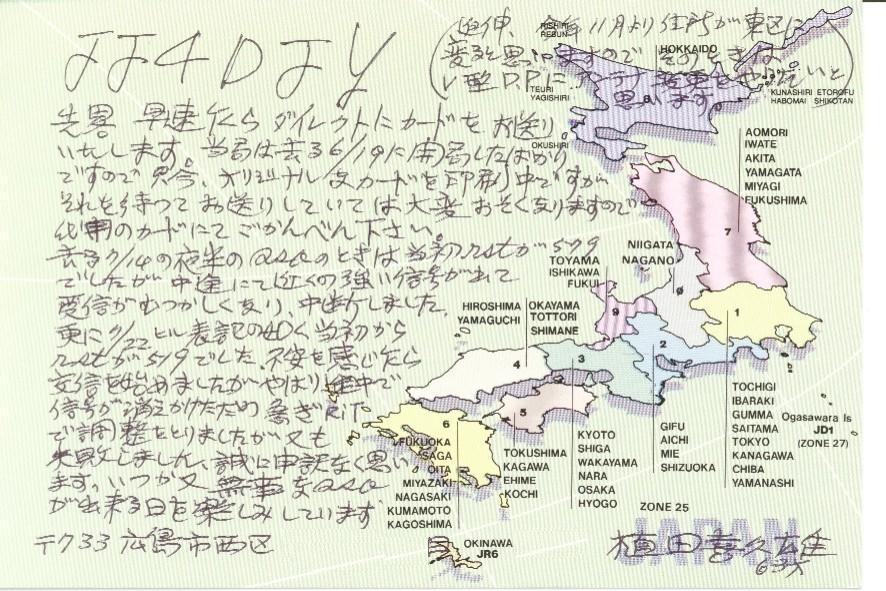 JJ4DJY
(追伸、今年11月より住所が東区に
変ると思いますので そのときは
V型D.Pにアンテナ変更をやりたいと
思います。)
先略。早速乍らダイレクトにカードをお送り
いたします。当局は去る6/19に開局したばかり
ですので只今、オリジナルなカードを印刷中ですが
それを待ってお送りしていては大変おそくなりますので
代用のカードにてごかんべん下さい。
去る7/14の夜半のQSOのときは当初rstが579
でしたが中途にて近くの強い信号が出て
受信がむつかしくなり、中断しました。
更に7/22 ヒル 表記の如く当初から
rstが519でした。不安を感じたら
交信を始めましたがやはり途中で
信号が消えかけたため急ぎRIT
で調整をとりましたが又も
失敗しました、誠に申訳なく思い
ます。いつか又無事なQSO
が出来る日を楽しみしています
〒733 広島市西区
植田喜久雄
63才
RISHIRI
REBUN
HOKKAIDO
TEURI
YAGISHIRI
8
OKUSHIRI
KUNASHIRI ETOROFU
HABOMAI SHIKOTAN
AOMORI
IWATE
AKITA
YAMAGATA
MIYAGI
FUKUSHIMA
7
NIIGATA
NAGANO
0
TOYAMA
ISHIKAWA
FUKUI
9
HIROSHIMA
YAMAGUCHI
OKAYAMA
TOTTORI
SHIMANE
4
3
2
1
5
6
FUKUOKA
SAGA
OITA
MIYAZAKI
NAGASAKI
KUMAMOTO
KAGOSHIMA
TOKUSHIMA
KAGAWA
EHIME
KOCHI
KYOTO
SHIGA
WAKAYAMA
NARA
OSAKA
HYOGO
GIFU
AICHI
MIE
SHIZUOKA
TOCHIGI
IBARAKI
GUMMA
SAITAMA
TOKYO
KANAGAWA
CHIBA
YAMANASHI
Ogasawara Is
JD1
(ZONE 27)
ZONE 25
JAPAN
OKINAWA
JR6